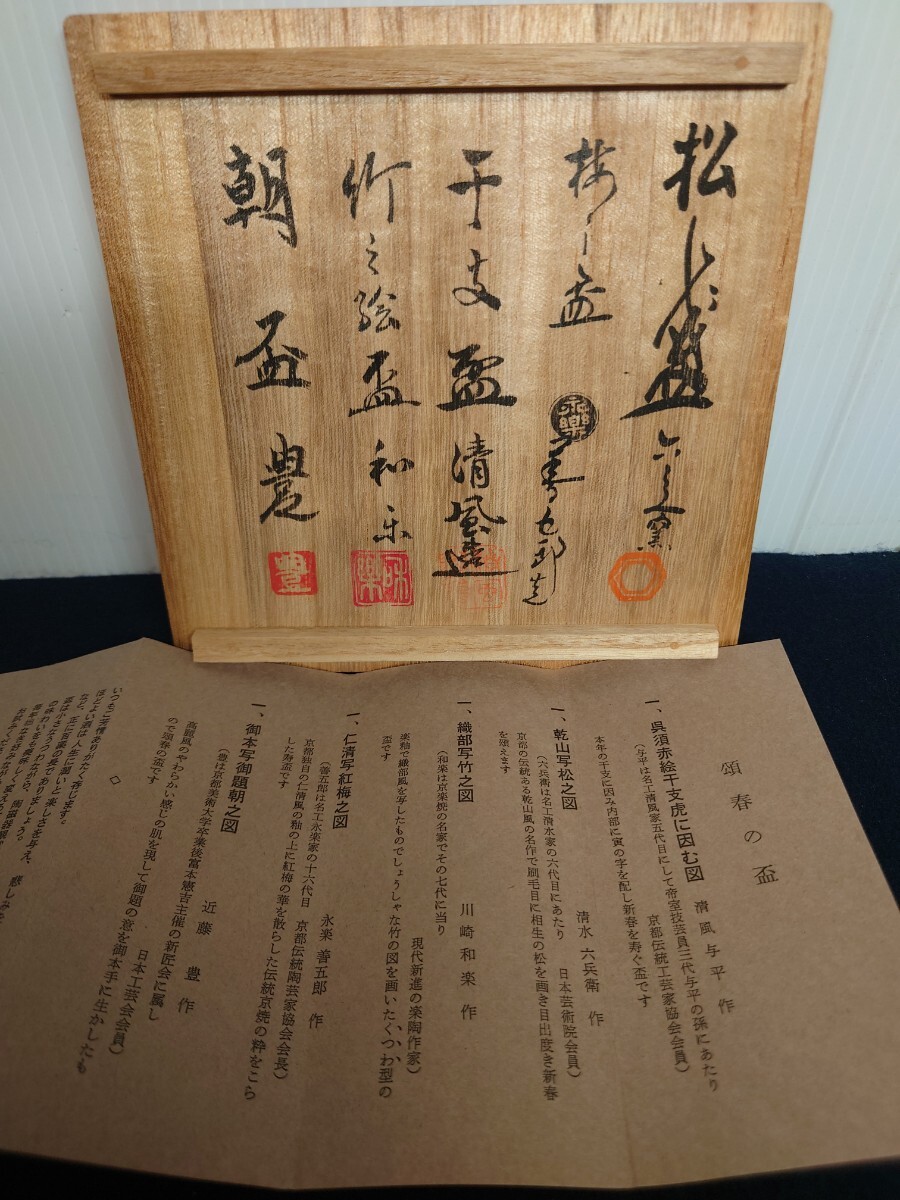 松
盃
六
窯
梅之盃
永樂
善五郎造
干支盃
清風造
竹之絵盃
和楽
和樂
朝盃
豊
豊
頌春の盃
一、呉須赤絵干支虎に因む図
清風与平作
(与平は名工清風家五代目にして帝室技芸員三代与平の孫にあたり
京都伝統工芸家協会会員)
本年の干支に因み内部に寅の字を配し新春を寿ぐ盃です
一、乾山写松之図
清水六兵衛作
(六兵衛は名工清水家の六代目にあたり 日本芸術院会員)
京都の伝統ある乾山風の名作で刷毛目に相生の松を画き目出度き新春
を迎えます
一、織部写竹之図
川崎和楽作
(和楽は京楽焼の名家でその七代に当り 現代新進の楽陶作家)
楽釉で織部風を写したものでしょうしゃな竹の図を画いたくつわ型の
盃です
一、仁清写紅梅之図
永楽善五郎作
(善五郎は名工永楽家の十六代目 京都伝統陶芸家協会会長)
京都独目の仁清風の釉の上に紅梅の華を散らした伝統京焼の粋をこら
した寿盃です
一、御本写御題朝之図
近藤豊作
(豊は京都美術大学卒業後富本憲吉主催の新匠会に属し
日本工芸会会員)
高麗風のやわらかい感じの肌を現して御題の意を御本手に生かしたも
ので頌春の盃です
◇
いつもご愛情ありがたく存じます。
ほどよい酒は人生に潤いと楽しさを与え、